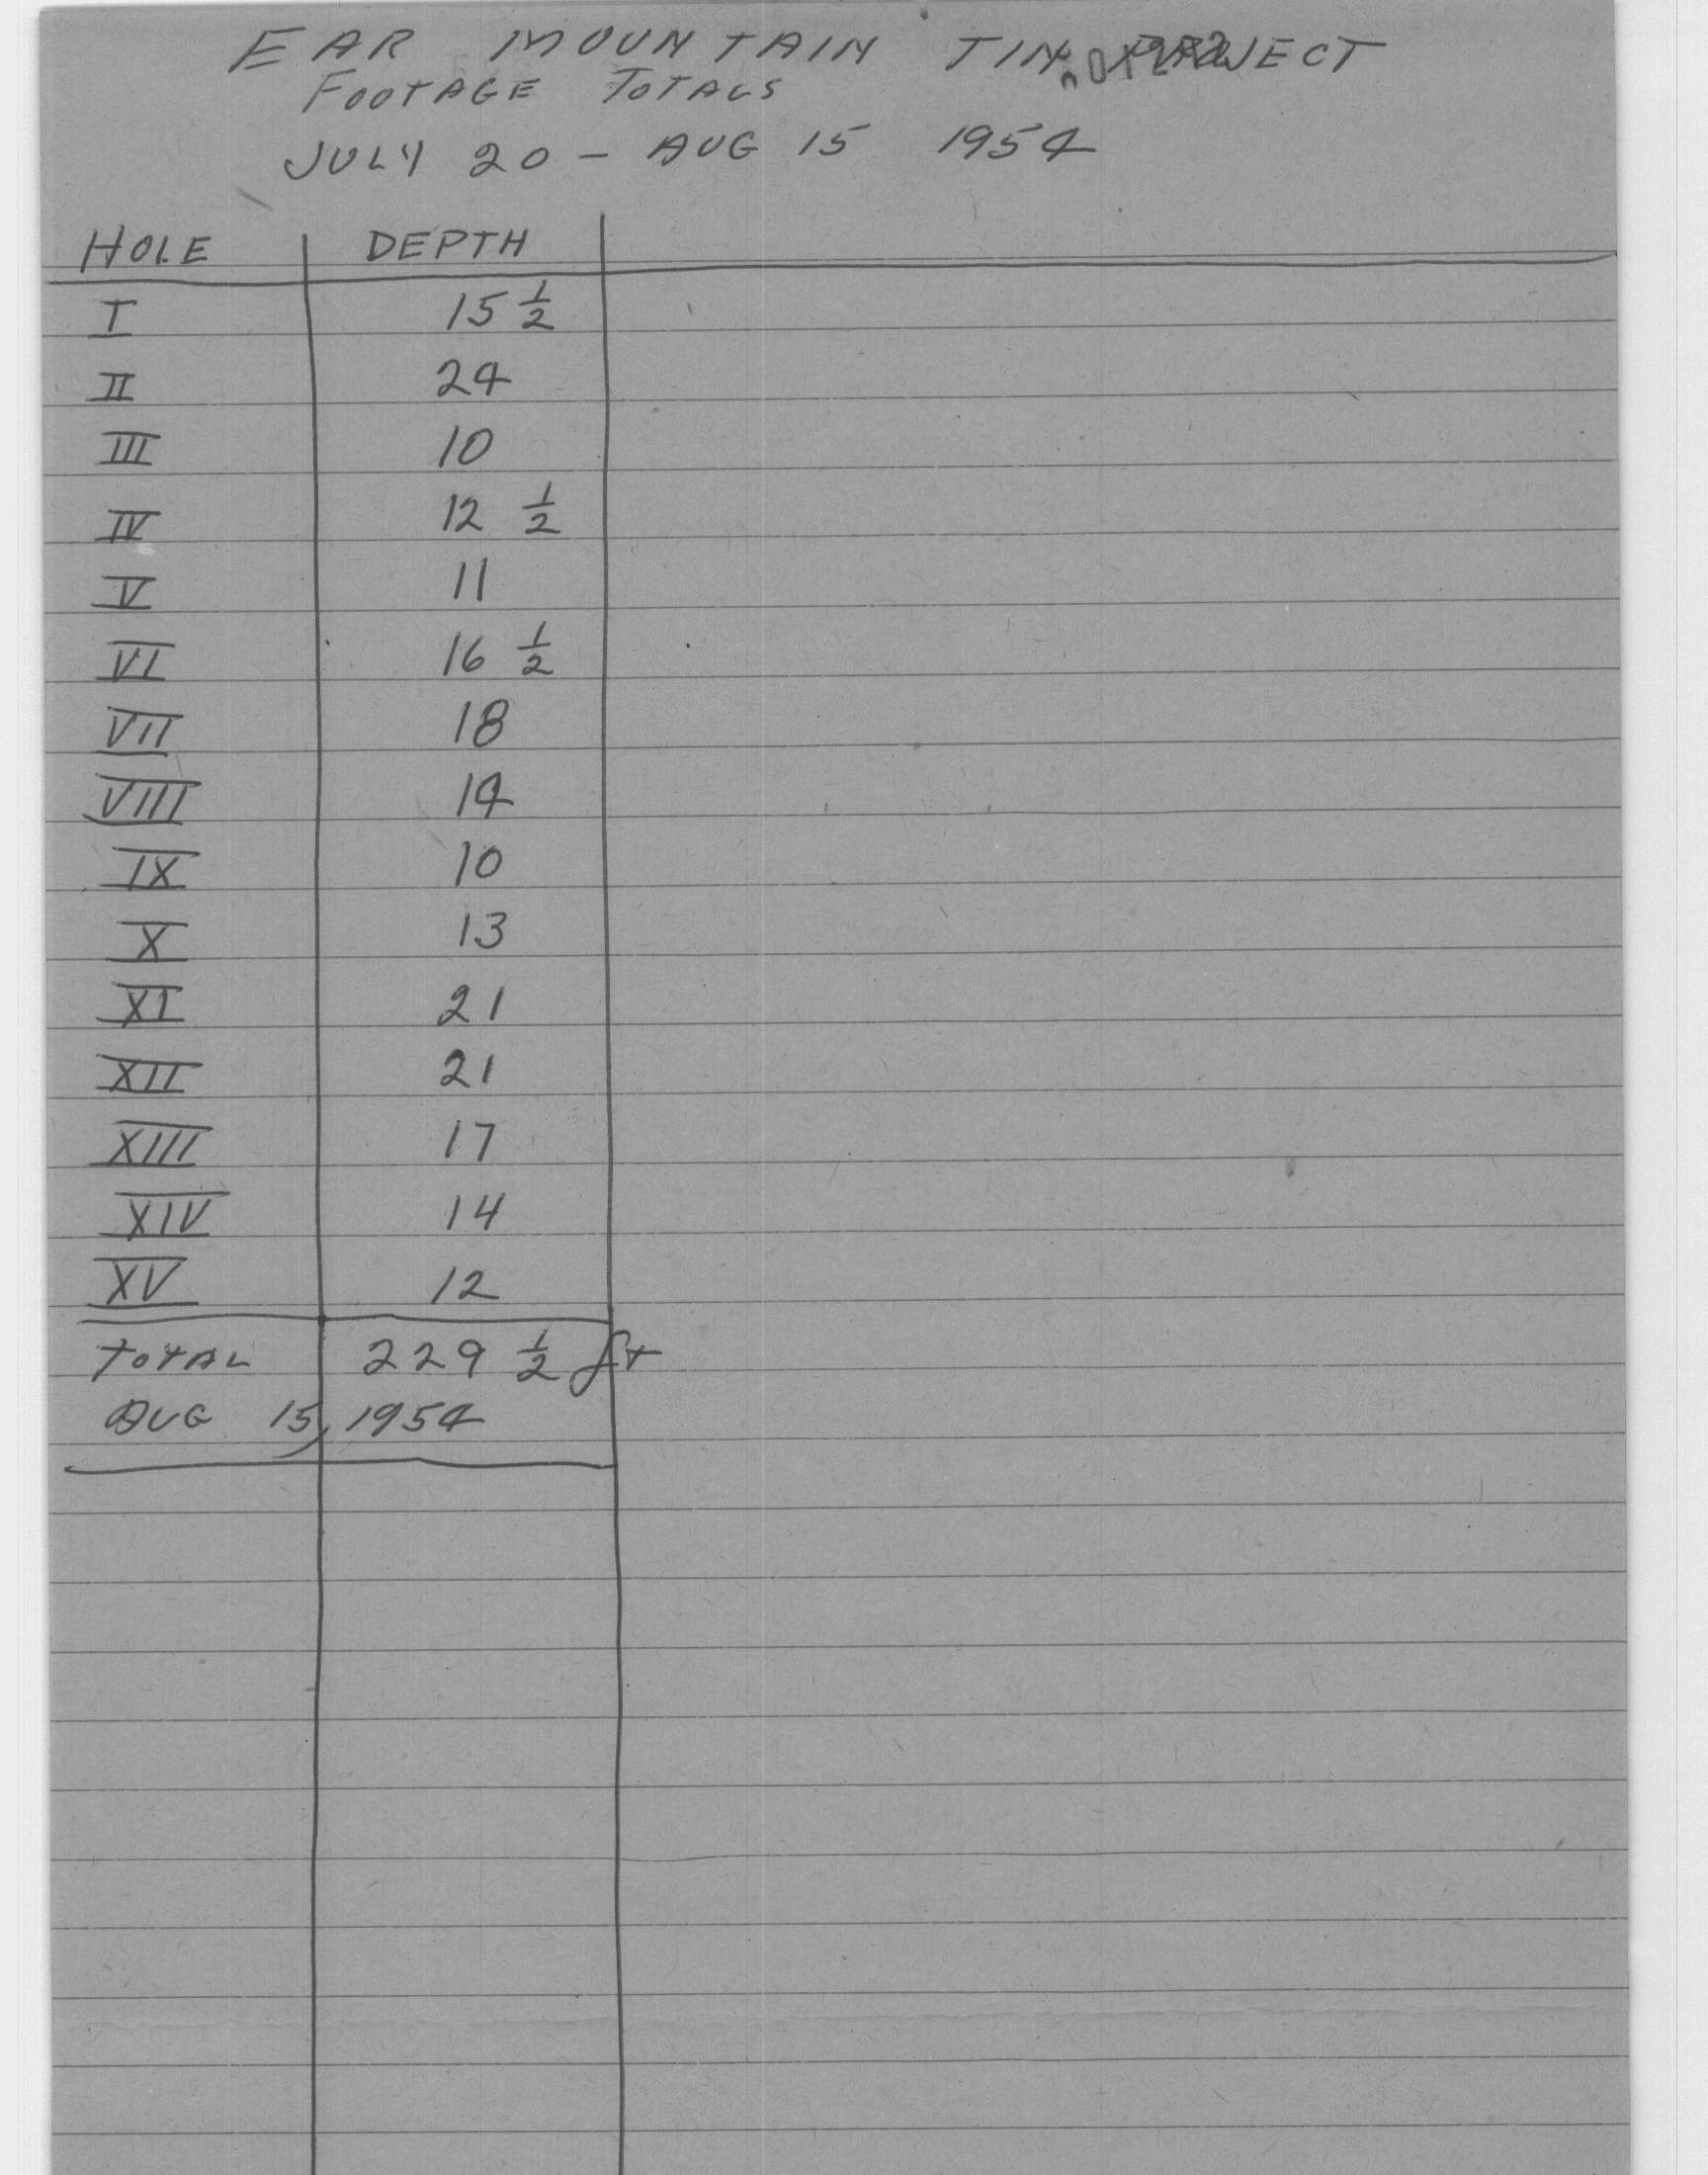 EAR MOUNTAIN TIN PROJECT
FOOTAGE TOTALS
JULY 20 - AUG 15 1954
HOLE DEPTH
I 15 1/2
II 24
III 10
IV 12 1/2
V 11
VI 16 1/2
VII 18
VIII 14
IX 10
X 13
XI 21
XII 21
XIII 17
XIV 14
XV 12
TOTAL 229 1/2 ft
AUG 15, 1954